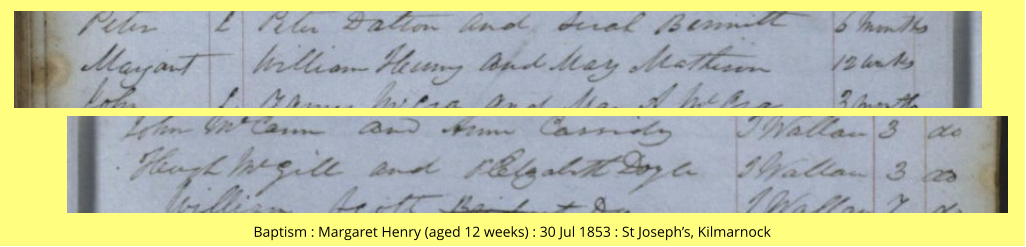 Peter L Peter Dalton and Sarah Bennitt 6 months
Margart William Henry and Mary Mathison 12 weeks
John L James McCra and A McCra 3 months
John McCann and Anne Cassidy J Wallau 3 do
Hugh McGill and Elizabeth Doyle J Wallau 3 do
William Scott J Wallau 7 do
Baptism : Margaret Henry (aged 12 weeks) : 30 Jul 1853 : St Joseph’s, Kilmarnock